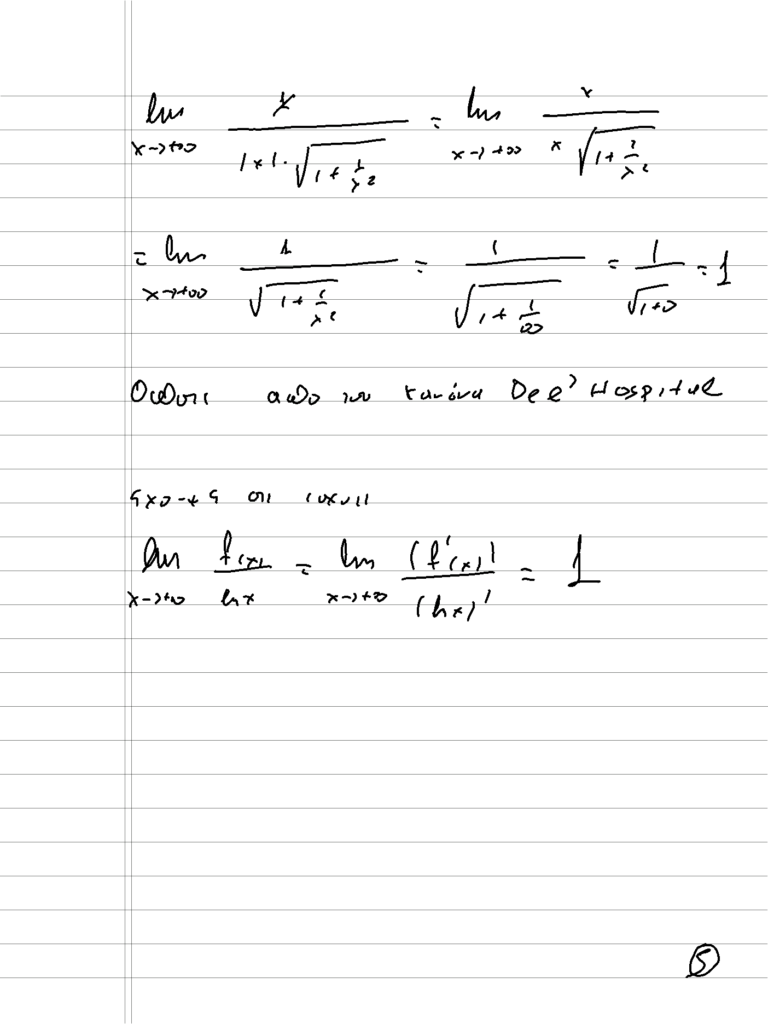 lim x→+∞ x / (|x|·√(1+1/x²)) = lim x→+∞ x / (x √(1+1/x²))
= lim x→+∞ 1 / √(1+1/x²) = 1 / √(1+1/∞) = 1/√(1+0) = 1
από τον κανόνα De l' Hospital
οτι ισχυει
lim x→+∞ f(x) / lnx = lim x→+∞ (f'(x)) / (lnx)' = 1
5